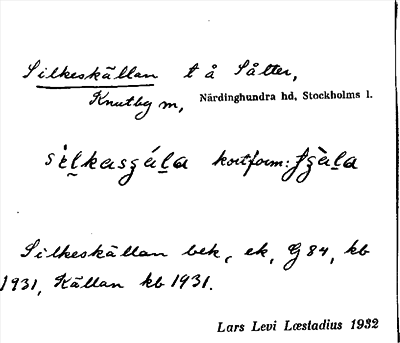 Silkeskällan t å Sätter,
Knutby m, Närdinghundra hd, Stockholms l.
kortform:
Silkeskällan bek, ek, G 84, kb
1931, Källan kb 1931.
Lars Levi Læstadius 1932